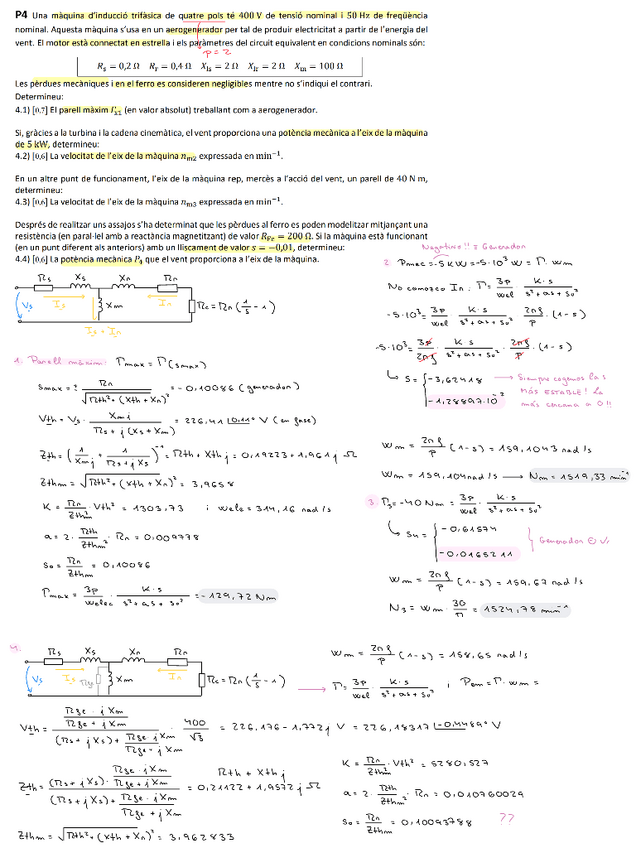 P4 Una màquina d'inducció trifàsica de quatre pols té 400 V de tensió nominal i 50 Hz de freqüència
nominal. Aquesta màquina s'usa en un aerogenerador per tal de produir electricitat a partir de l'energia del
vent. El motor està connectat en estrella i els paràmetres del circuit equivalent en condicions nominals són:
p = 2
Rs = 0,2 Ω Rr = 0,4 Ω Xls = 2 Ω Xlr = 2 Ω Xm = 100 Ω
Les pèrdues mecàniques i en el ferro es consideren negligibles mentre no s'indiqui el contrari.
Determineu:
4.1) [0,7] El parell màxim Γx1 (en valor absolut) treballant com a aerogenerador.
Si, gràcies a la turbina i la cadena cinemàtica, el vent proporciona una potència mecànica a l'eix de la màquina
de 5 kW, determineu:
4.2) [0,6] La velocitat de l'eix de la màquina nm2 expressada en min⁻¹.
En un altre punt de funcionament, l'eix de la màquina rep, mercès a l'acció del vent, un parell de 40 N m,
determineu:
4.3) [0,6] La velocitat de l'eix de la màquina nm3 expressada en min⁻¹.
Després de realitzar uns assajos s'ha determinat que les pèrdues al ferro es poden modelitzar mitjançant una
resistència (en paral·lel amb a reactància magnetitzant) de valor RFe = 200 Ω. Si la màquina està funcionant
(en un punt diferent als anteriors) amb un lliscament de valor s = −0,01, determineu:
4.4) [0,6] La potència mecànica P4 que el vent proporciona a l'eix de la màquina.
Rs Xs Xr Rr
Vs Is Xm Ir Rc = Rr (1/s - 1)
Is + Ir
1. Parell màxim: Γmax = Γ(smax)
smax = ± Rr / √(Rth² + (Xth + Xr)²) = -0,10086 (generador)
Vth = Vs · Xm j / (Rs + j (Xs + Xm)) = 226,41 ∟0,11° V (en fase)
Zth = (1/(Xm j) + 1/(Rs + j Xs))⁻¹ = Rth + Xth j = 0,19223 + 1,961 j Ω
Zthm = √(Rth² + (Xth + Xr)²) = 3,9658
K = Rr/Zthm² · Vth² = 1303,73 i wele = 314,16 rad/s
a = 2 · Rth/Zthm² · Rr = 0,009778
s0 = Rr/Zthm = 0,10086
Γmax = 3p/welec · K·s/(s² + as + s0²) = -129,72 Nm
Negativo!! = Generador
2. Pmec = -5 kW = -5·10³ W = Γ · wm
No conozco In: Γ = 3p/wel · K·s/(s² + as + s0²)
-5·10³ = 3p/wel · K·s/(s² + as + s0²) · 2πf/p · (1-s)
-5·10³ = 3p/2πf · K·s/(s² + as + s0²) · 2πf/p · (1-s)
s = { -3,62418
-1,28897·10⁻²
Siempre cogemos la s MÁS ESTABLE! La más cercana a 0!!
wm = 2πf/p (1-s) = 159,1043 rad/s
wm = 159,104 rad/s → Nm = 1519,33 min⁻¹
3. Γ3 = -40 Nm = 3p/wel · K·s/(s² + as + s0²)
s4 = { -0,61574
-0,0165211
} Generador
wm = 2πf/p (1-s) = 159,67 rad/s
N3 = wm · 30/π = 1524,78 min⁻¹
4.
Rs Xs Xr Rr
Vs Is Rfe Xm Ir Rc = Rr (1/s - 1)
wm = 2πf/p (1-s) = 158,65 rad/s
Γ = 3p/wel · K·s/(s² + as + s0²) i Pem = Γ · wm =
Vth = (Rfe · j Xm/(Rfe + j Xm)) / ((Rs + j Xs) + Rfe · j Xm/(Rfe + j Xm)) · 400/√3 = 226,176 - 1,772 j V = 226,18317 ∟-0,4489° V
Zth = ((Rs + j Xs) · Rfe · j Xm/(Rfe + j Xm)) / ((Rs + j Xs) + Rfe · j Xm/(Rfe + j Xm)) = Rth + Xth j = 0,21122 + 1,9572 j Ω
Zthm = √(Rth² + (Xth + Xr)²) = 3,962833
K = Rr/Zthm² · Vth² = 5280,527
a = 2 · Rth/Zthm² · Rr = 0,010760029
s0 = Rr/Zthm = 0,10093788 ??